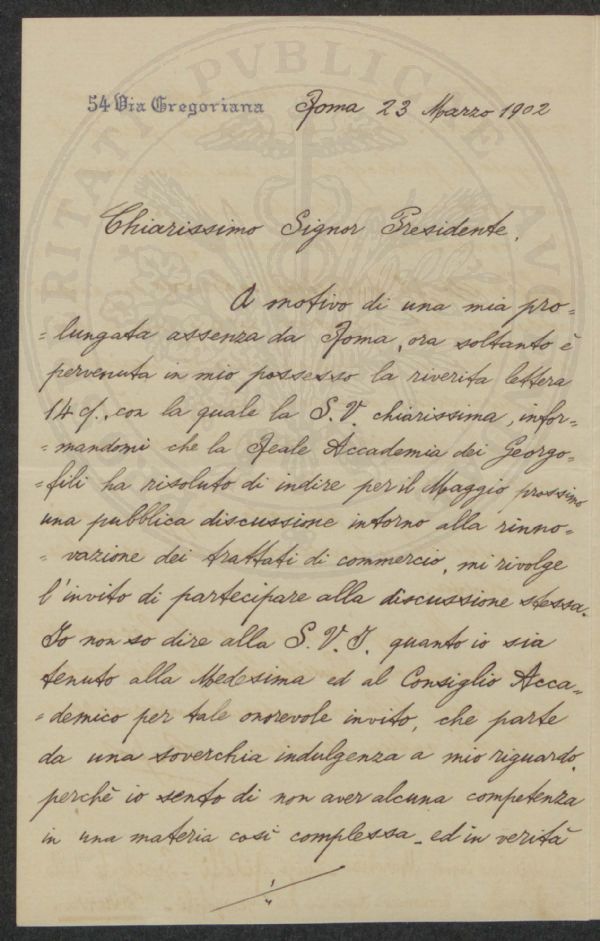 54 Via Gregoriana Roma 23 Marzo 1902
Chiarissimo Signor Presidente,
A motivo di una mia pro=
=lungata assenza da Roma, ora soltanto è
pervenuta in mio possesso la riverita lettera
14 c/., con la quale la S. V. chiarissima, infor=
=mandomi che la Reale Accademia dei Georgo=
=fili ha risoluto di indire per il Maggio prossimo
una pubblica discussione intorno alla rinno=
=vazione dei trattati di commercio, mi rivolge
l'invito di partecipare alla discussione stessa.
Io non so dire alla S. V. I. quanto io sia
tenuto alla Medesima ed al Consiglio Acca=
=demico per tale onorevole invito, che parte
da una soverchia indulgenza a mio riguardo,
perchè io sento di non aver alcuna competenza
in una materia così complessa, ed in verità
./.